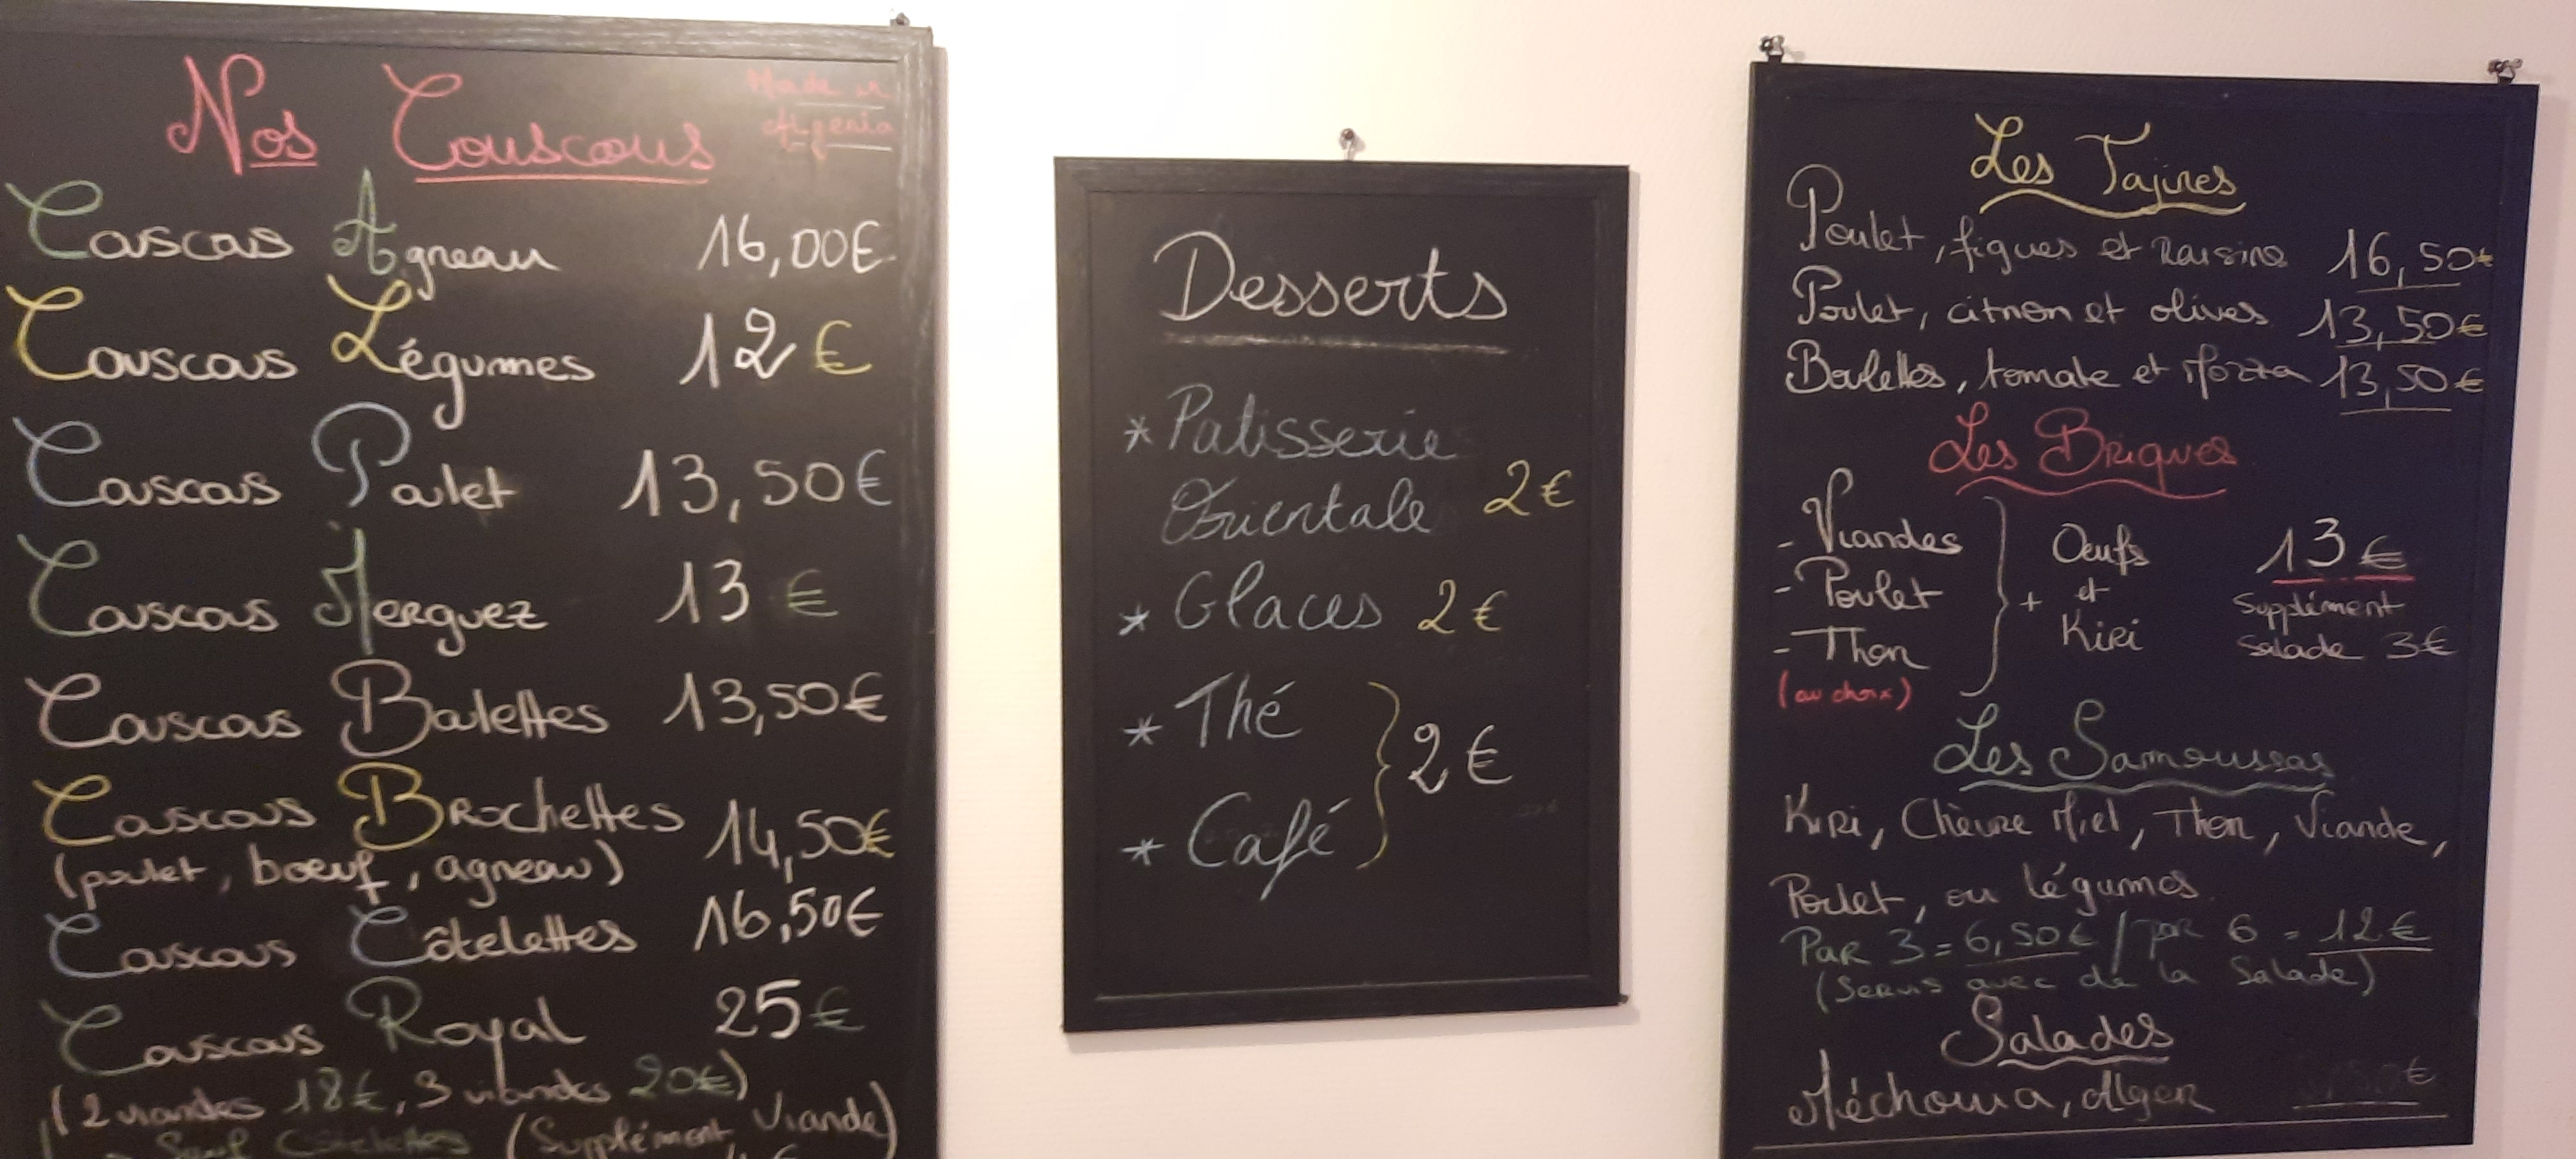 Nos Couscous
Made in
Algeria
Couscous Agneau 16,00€
Couscous Légumes 12€
Couscous Poulet 13,50€
Couscous Merguez 13€
Couscous Boulettes 13,50€
Couscous Brochettes 14,50€
(poulet, boeuf, agneau)
Couscous Côtelettes 16,50€
Couscous Royal 25€
(2 viandes 18€, 3 viandes 20€)
Sauf Côtelettes (Supplément Viande)
Desserts
* Patisserie
Orientale 2€
* Glaces 2€
* Thé
2€
* Café
Les Tajines
Poulet, figues et raisins 16,50€
Poulet, citron et olives 13,50€
Boulettes, tomate et Mozza 13,50€
Les Briques
- Viandes
- Poulet
- Thon
(au choix)
+ Oeufs
et
Kiri
13€
Supplément
Salade 3€
Les Samoussas
Kiri, Chèvre Miel, Thon, Viande,
Poulet, ou légumes
Par 3 = 6,50€ / par 6 = 12€
(Servis avec de la Salade)
Salades
Méchouia, Alger